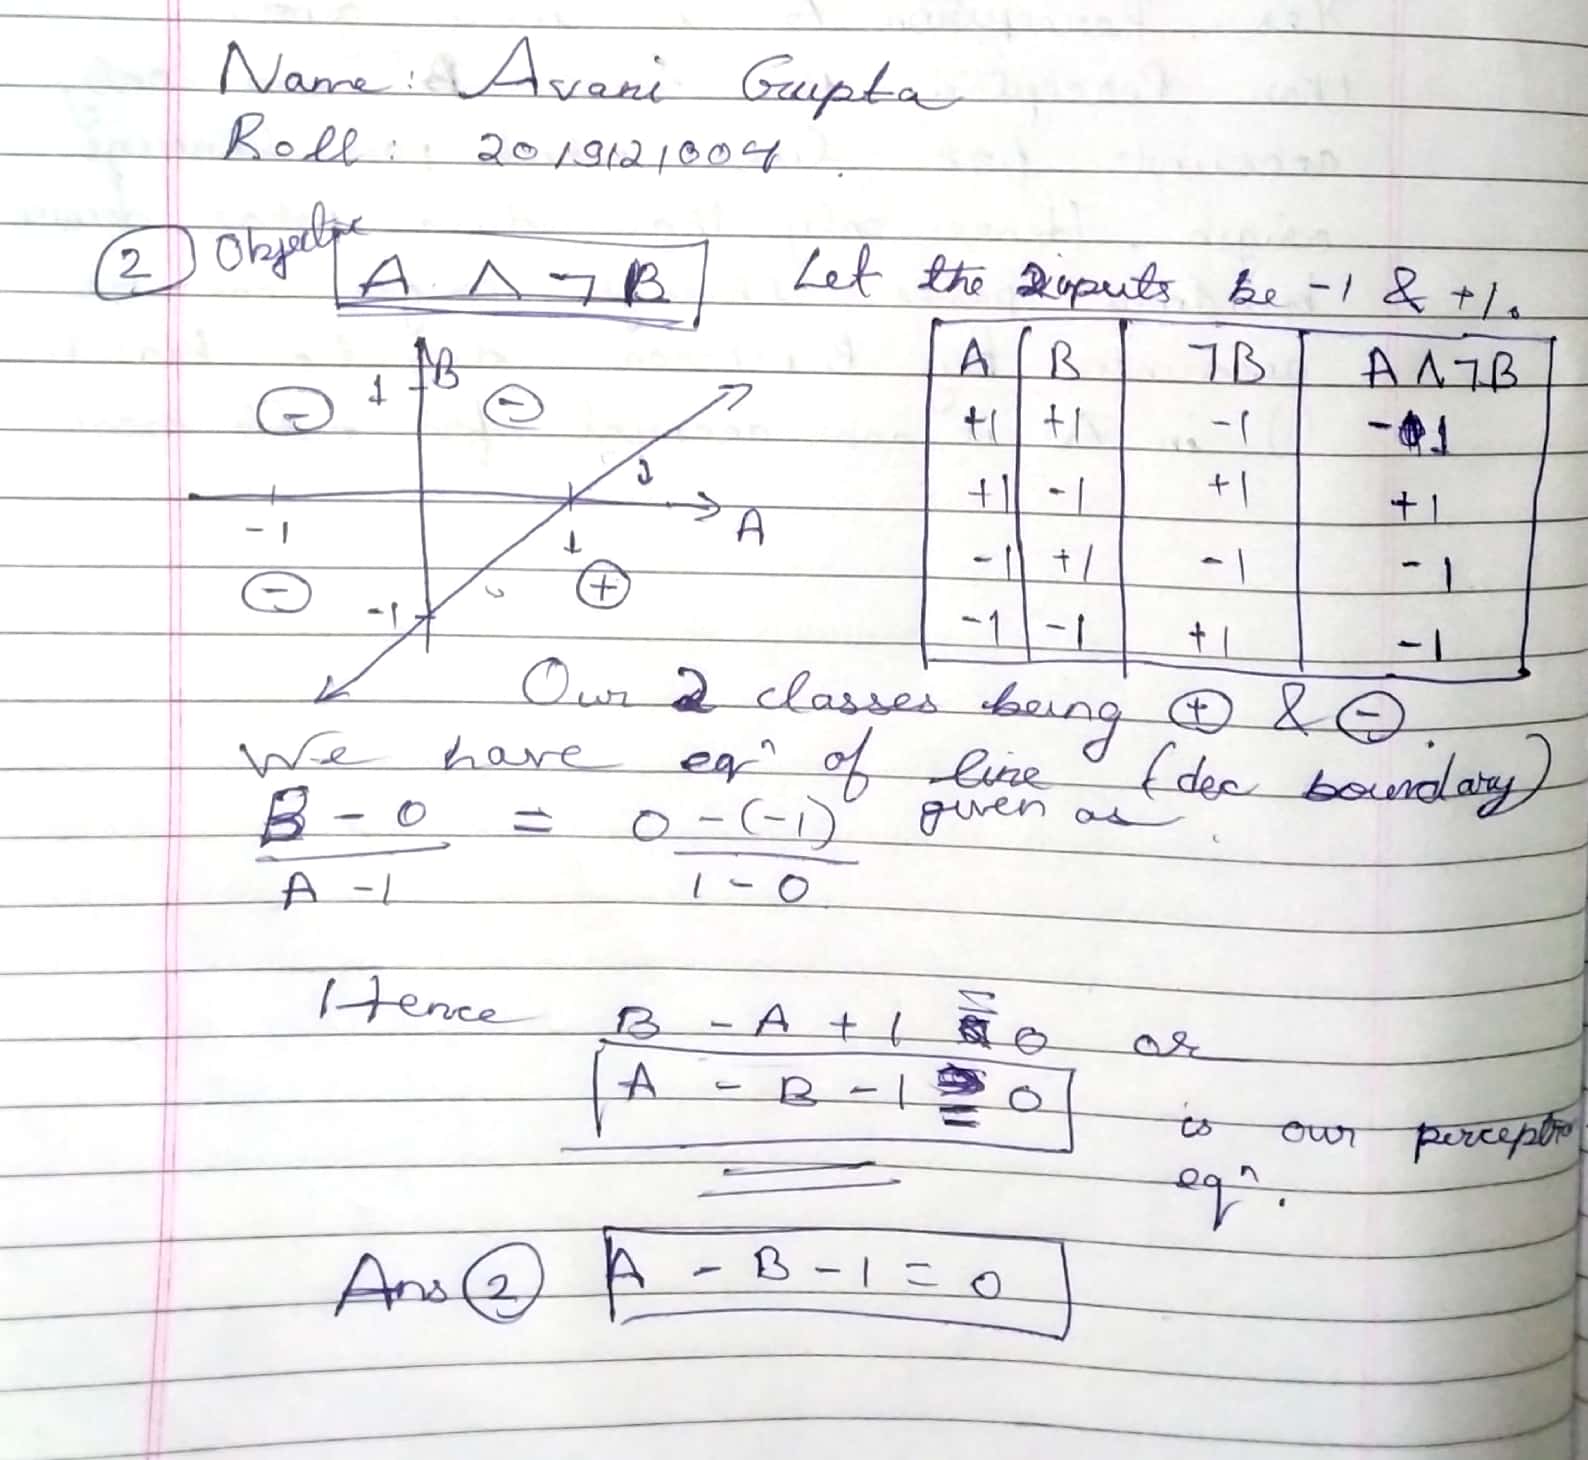 Name: Avani Gupta
Roll: 2019121004
② Objective A ∧ ¬B Let the inputs be -1 & +1.
B
1
⊖ ⊖
A
-1 1
⊖ ⊕
-1
A B ¬B A∧¬B
+1 +1 -1 -1
+1 -1 +1 +1
-1 +1 -1 -1
-1 -1 +1 -1
Our 2 classes being ⊕ & ⊖.
We have eqⁿ of line (dec boundary)
given as
B - 0 = 0 - (-1)
A - 1 1 - 0
Hence B - A + 1 = 0 or
A - B - 1 = 0 is our
eqⁿ.
Ans ② A - B - 1 = 0